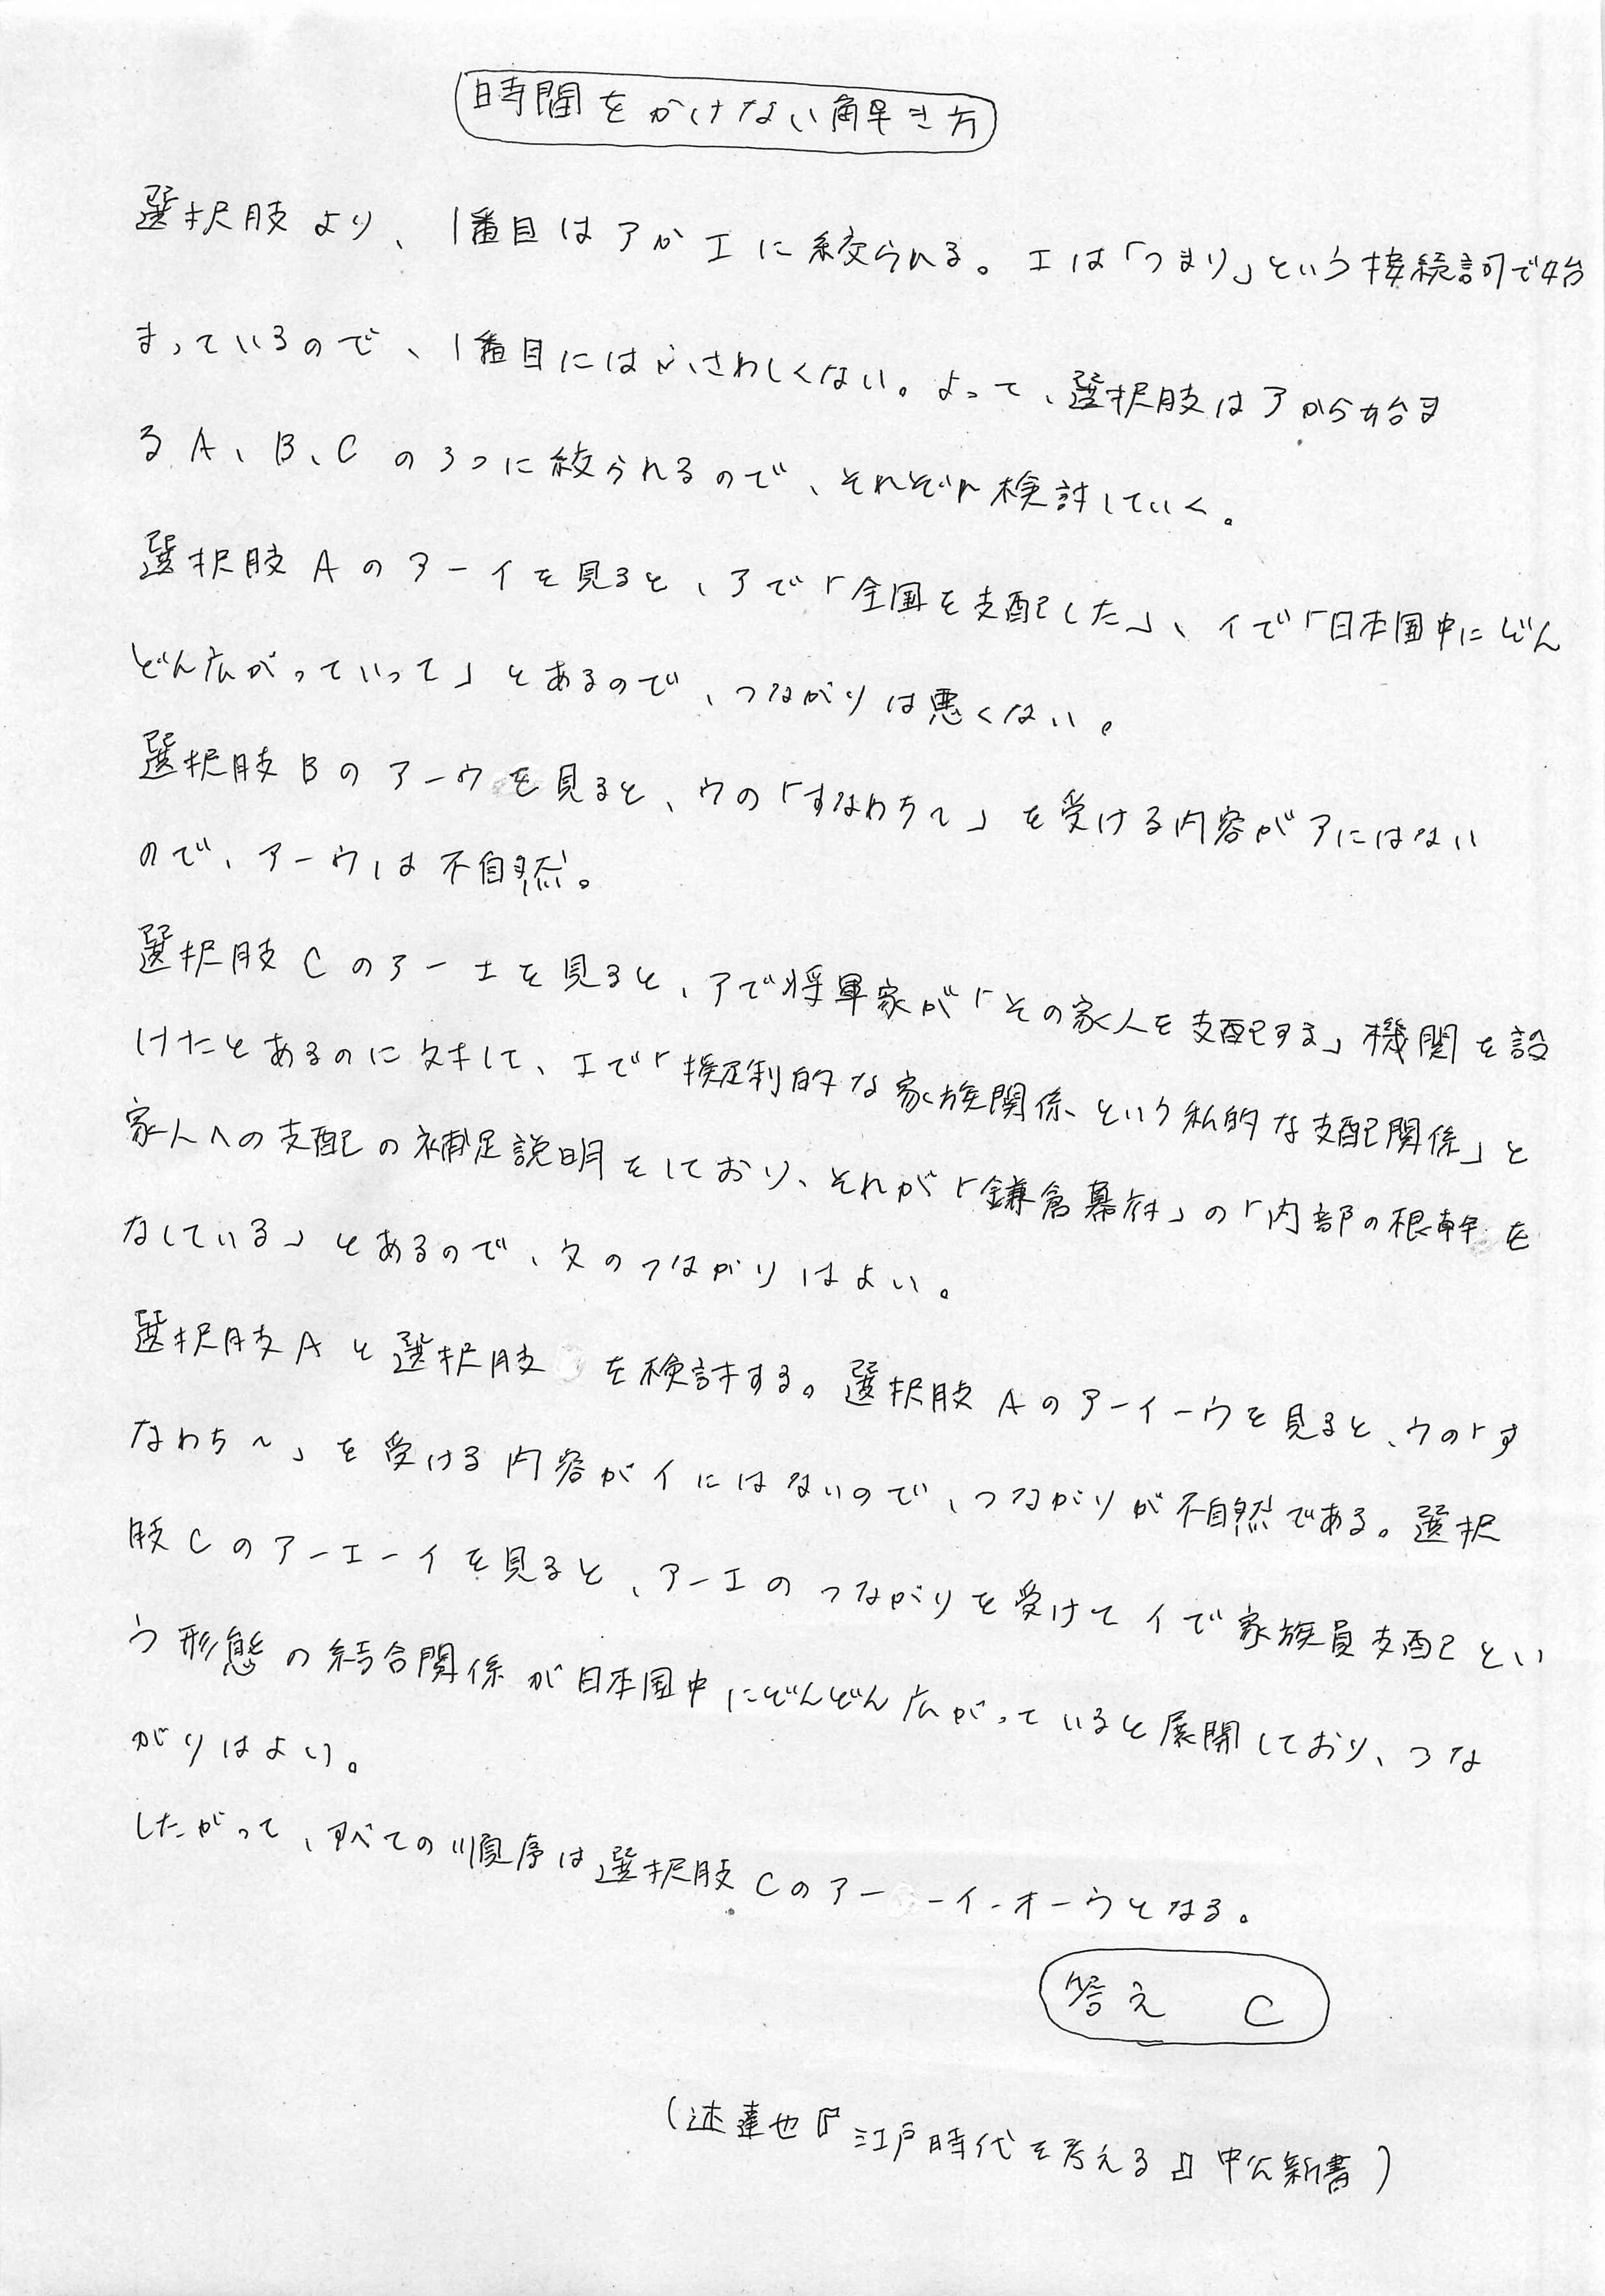 時間をかけない解き方
選択肢より、1番目はアかエに絞られる。エは「つまり」という接続詞で始
まっているので、1番目にはふさわしくない。よって、選択肢はアから始ま
るA、B、Cの3つに絞られるので、それぞれ検討していく。
選択肢Aのアーイを見ると、アで「全国を支配した」、イで「日本国中にどん
どん広がっていって」とあるので、つながりは悪くない。
選択肢Bのアーウを見ると、ウの「すなわち~」を受ける内容がアにはない
ので、アーウは不自然。
選択肢Cのアーエを見ると、アで将軍家が「その家人を支配する」機関を設
けたとあるのに対して、エで「擬制的な家族関係、という私的な支配関係」と
家人への支配の補足説明をしており、それが「鎌倉幕府」の「内部の根幹を
なしている」とあるので、文のつながりはよい。
選択肢Aと選択肢 を検討する。選択肢Aのアーイーウを見ると、ウの「す
なわち~」を受ける内容がイにはないので、つながりが不自然である。選択
肢Cのアーエーイを見ると、アーエのつながりを受けてイで家族員支配とい
う形態の結合関係が日本国中にどんどん広がっていると展開しており、つな
がりはよい。
したがって、すべての順序は選択肢Cのアー ーイ-オーウとなる。
答え C
(達也『江戸時代を考える』中公新書)